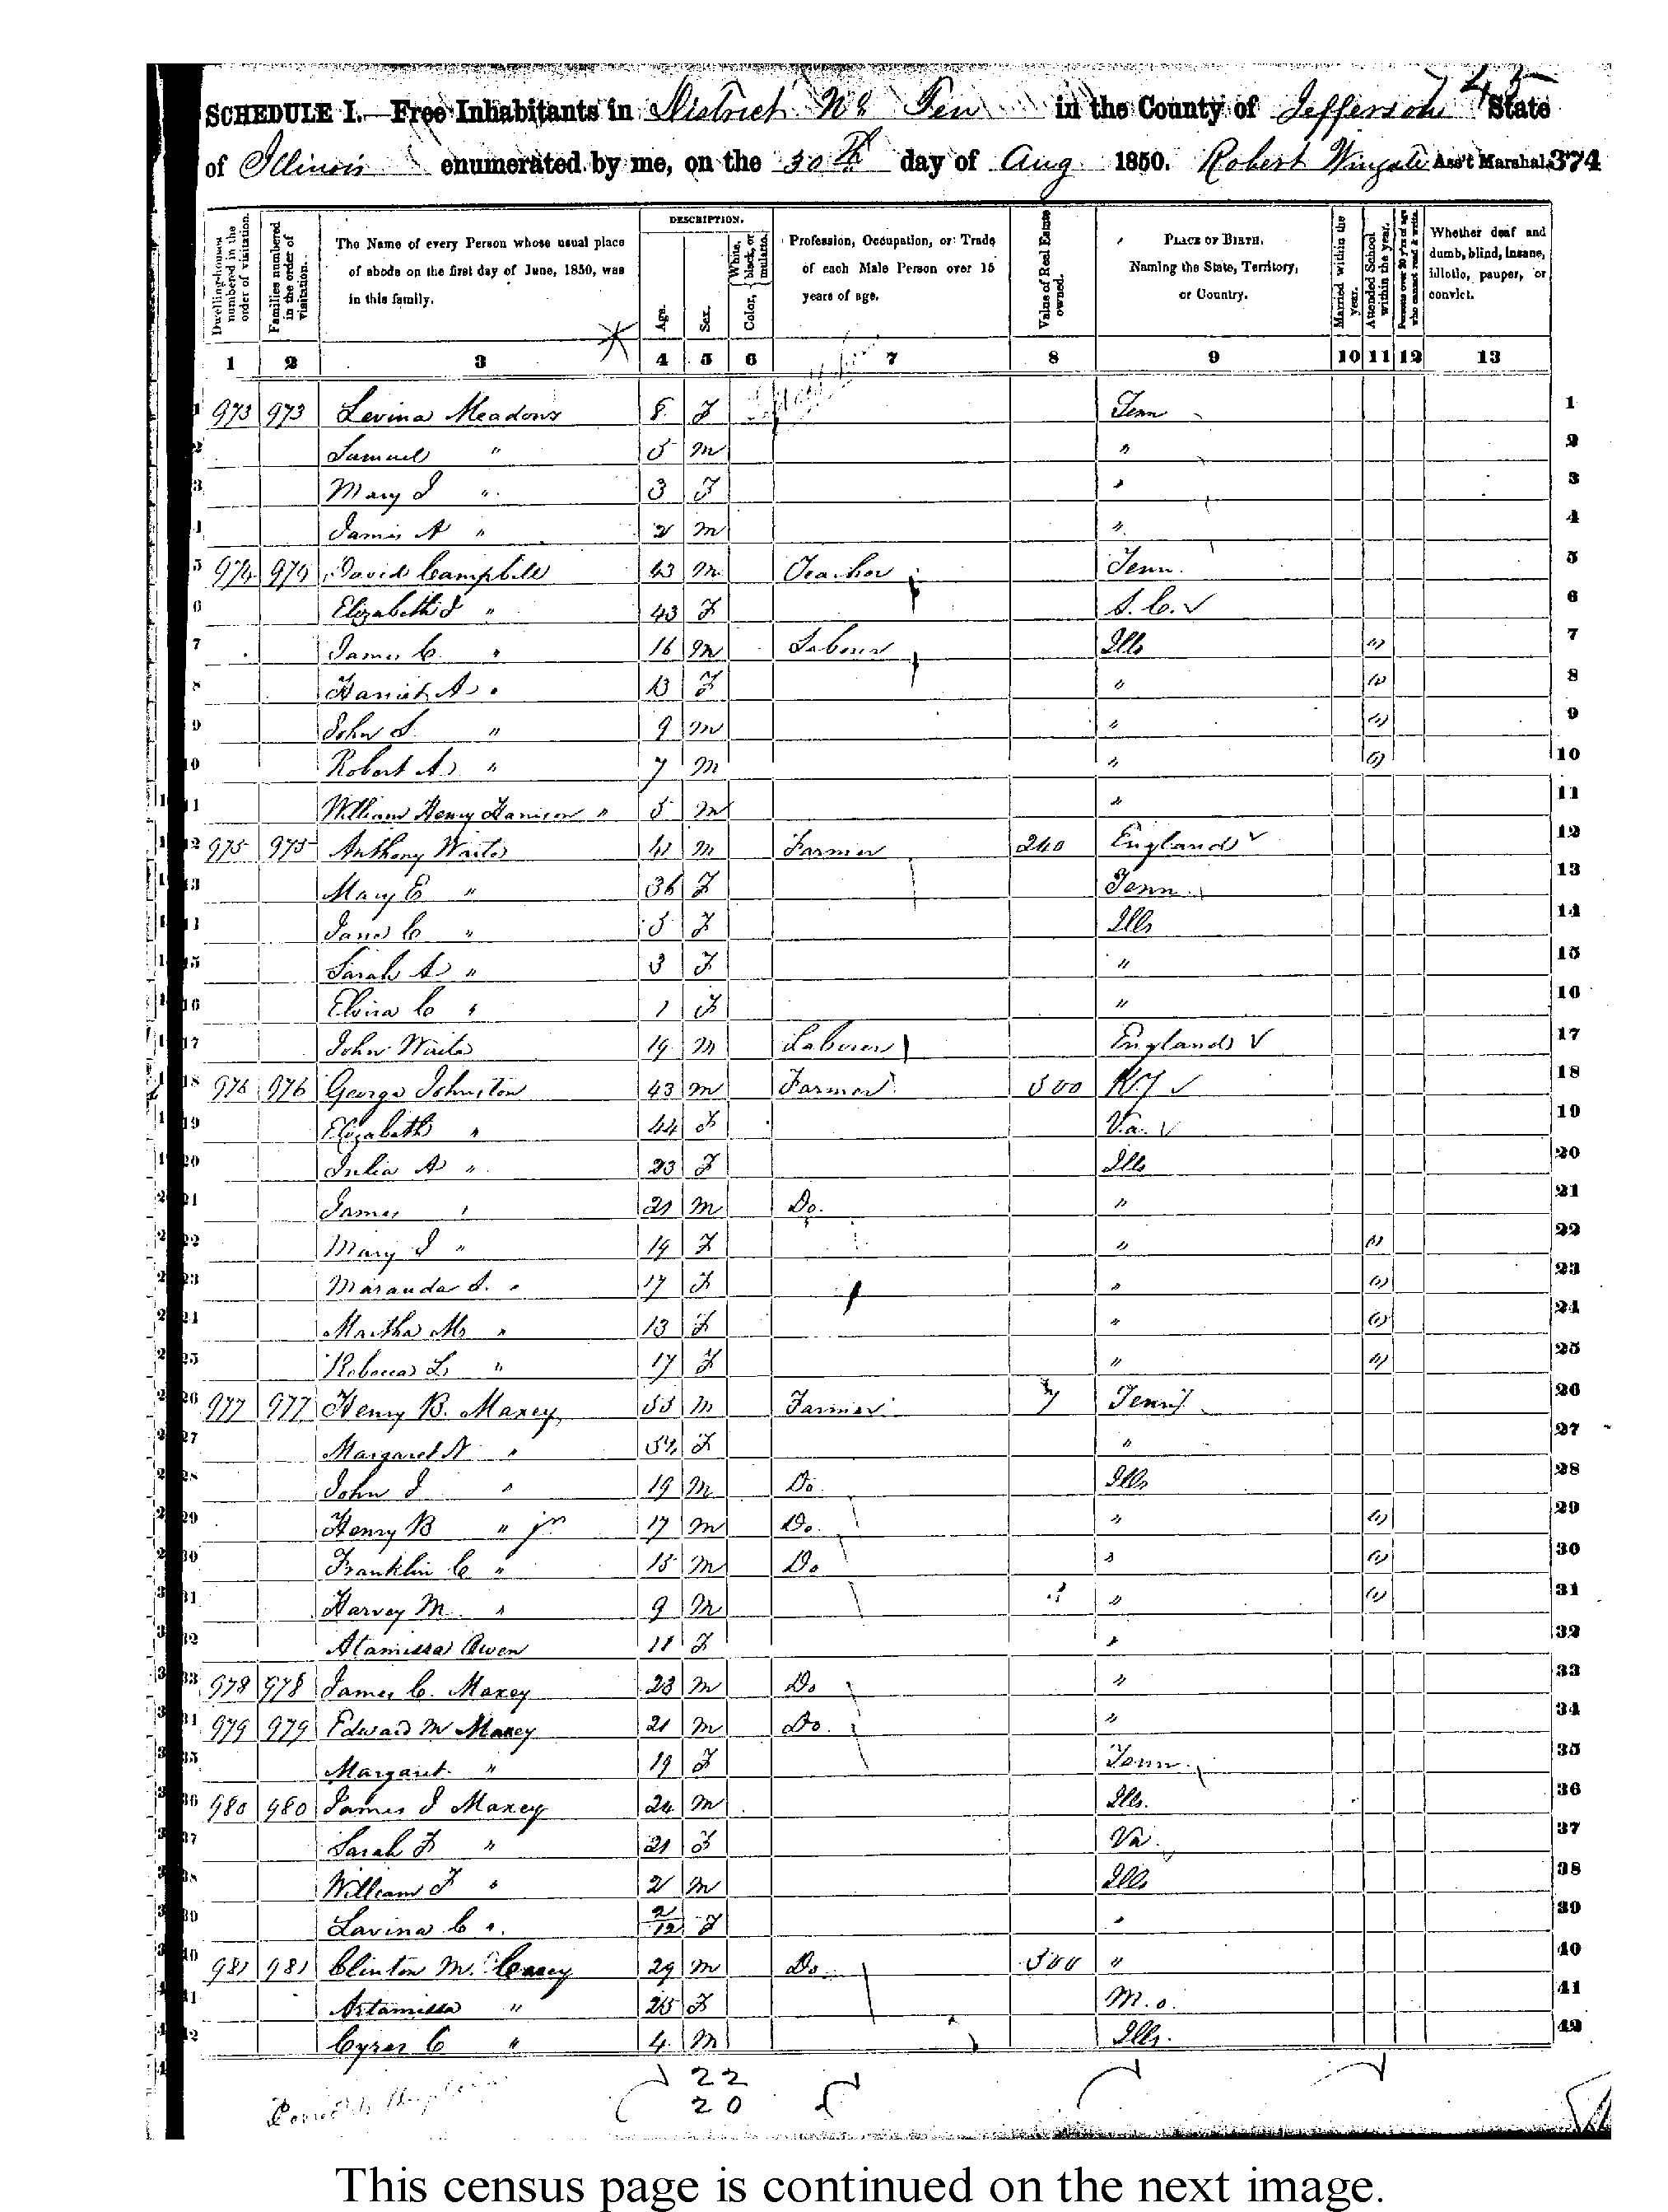 745
SCHEDULE I.—Free Inhabitants in District No Ten in the County of Jefferson State
of Illinois enumerated by me, on the 30th day of Aug 1850. Robert Wingate Ass't Marshal. 374
Dwelling-houses numbered in the order of visitation.
Families numbered in the order of visitation.
The Name of every Person whose usual place of abode on the first day of June, 1850, was in this family.
DESCRIPTION.
Age.
Sex.
Color, White, black, or mulatto.
Profession, Occupation, or Trade of each Male Person over 15 years of age.
Value of Real Estate owned.
PLACE OF BIRTH. Naming the State, Territory, or Country.
Married within the year.
Attended School within the year.
Persons over 20 y'rs of age who cannot read & write.
Whether deaf and dumb, blind, insane, idiotic, pauper, or convict.
1 2 3 4 5 6 7 8 9 10 11 12 13
1 973 973 Levina Meadows 8 F Tenn 1
2 Samuel " 5 M " 2
3 Mary J " 3 F " 3
4 James A " 2 M " 4
5 974 974 David Campbell 43 M Teacher Tenn. 5
6 Elizabeth J " 43 F S. C. ✓ 6
7 James C. " 16 M Laborer Ills (1) 7
8 Harriet A. " 13 F " (1) 8
9 John S. " 9 M " (1) 9
10 Robert A. " 7 M " (1) 10
11 William Henry Harrison " 5 M " 11
12 975 975 Anthony Waite 41 M Farmer 240 England ✓ 12
13 Mary E " 36 F Tenn. 13
14 Jane C " 5 F Ills 14
15 Sarah A " 3 F " 15
16 Elvira C " 1 F " 16
17 John Waite 19 M Laborer England ✓ 17
18 976 976 George Johnston 43 M Farmer 500 KY ✓ 18
19 Elizabeth " 44 F Va. ✓ 19
20 Julia A " 23 F Ills 20
21 James " 21 M Do. " 21
22 Mary J " 19 F " (1) 22
23 Maranda S. " 17 F " (1) 23
24 Martha M " 13 F " (1) 24
25 Rebecca L " 17 F " (1) 25
26 977 977 Henry B. Maxey 55 M Farmer Tenn 26
27 Margaret N " F " 27
28 John J " 19 M Do Ills 28
29 Henry B " jr 17 M Do. " (1) 29
30 Franklin C " 15 M Do " (1) 30
31 Harvey M. " 9 M " (1) 31
32 Atamissa Owen 11 F " 32
33 978 978 James C. Maxey 23 M Do " 33
34 979 979 Edward M Maxey 21 M Do. " 34
35 Margaret " 19 F Tenn. 35
36 980 980 James J Maxey 24 M Ills. 36
37 Sarah F " 21 F Va. 37
38 William F " 2 M Ills 38
39 Lavina C " 2/12 F " 39
40 981 981 Clinton M. Casey 29 M Do 500 " 40
41 Artamissa " 25 F M.o. 41
42 Cyrus C " 4 M Ills. 42
22
20
This census page is continued on the next image.